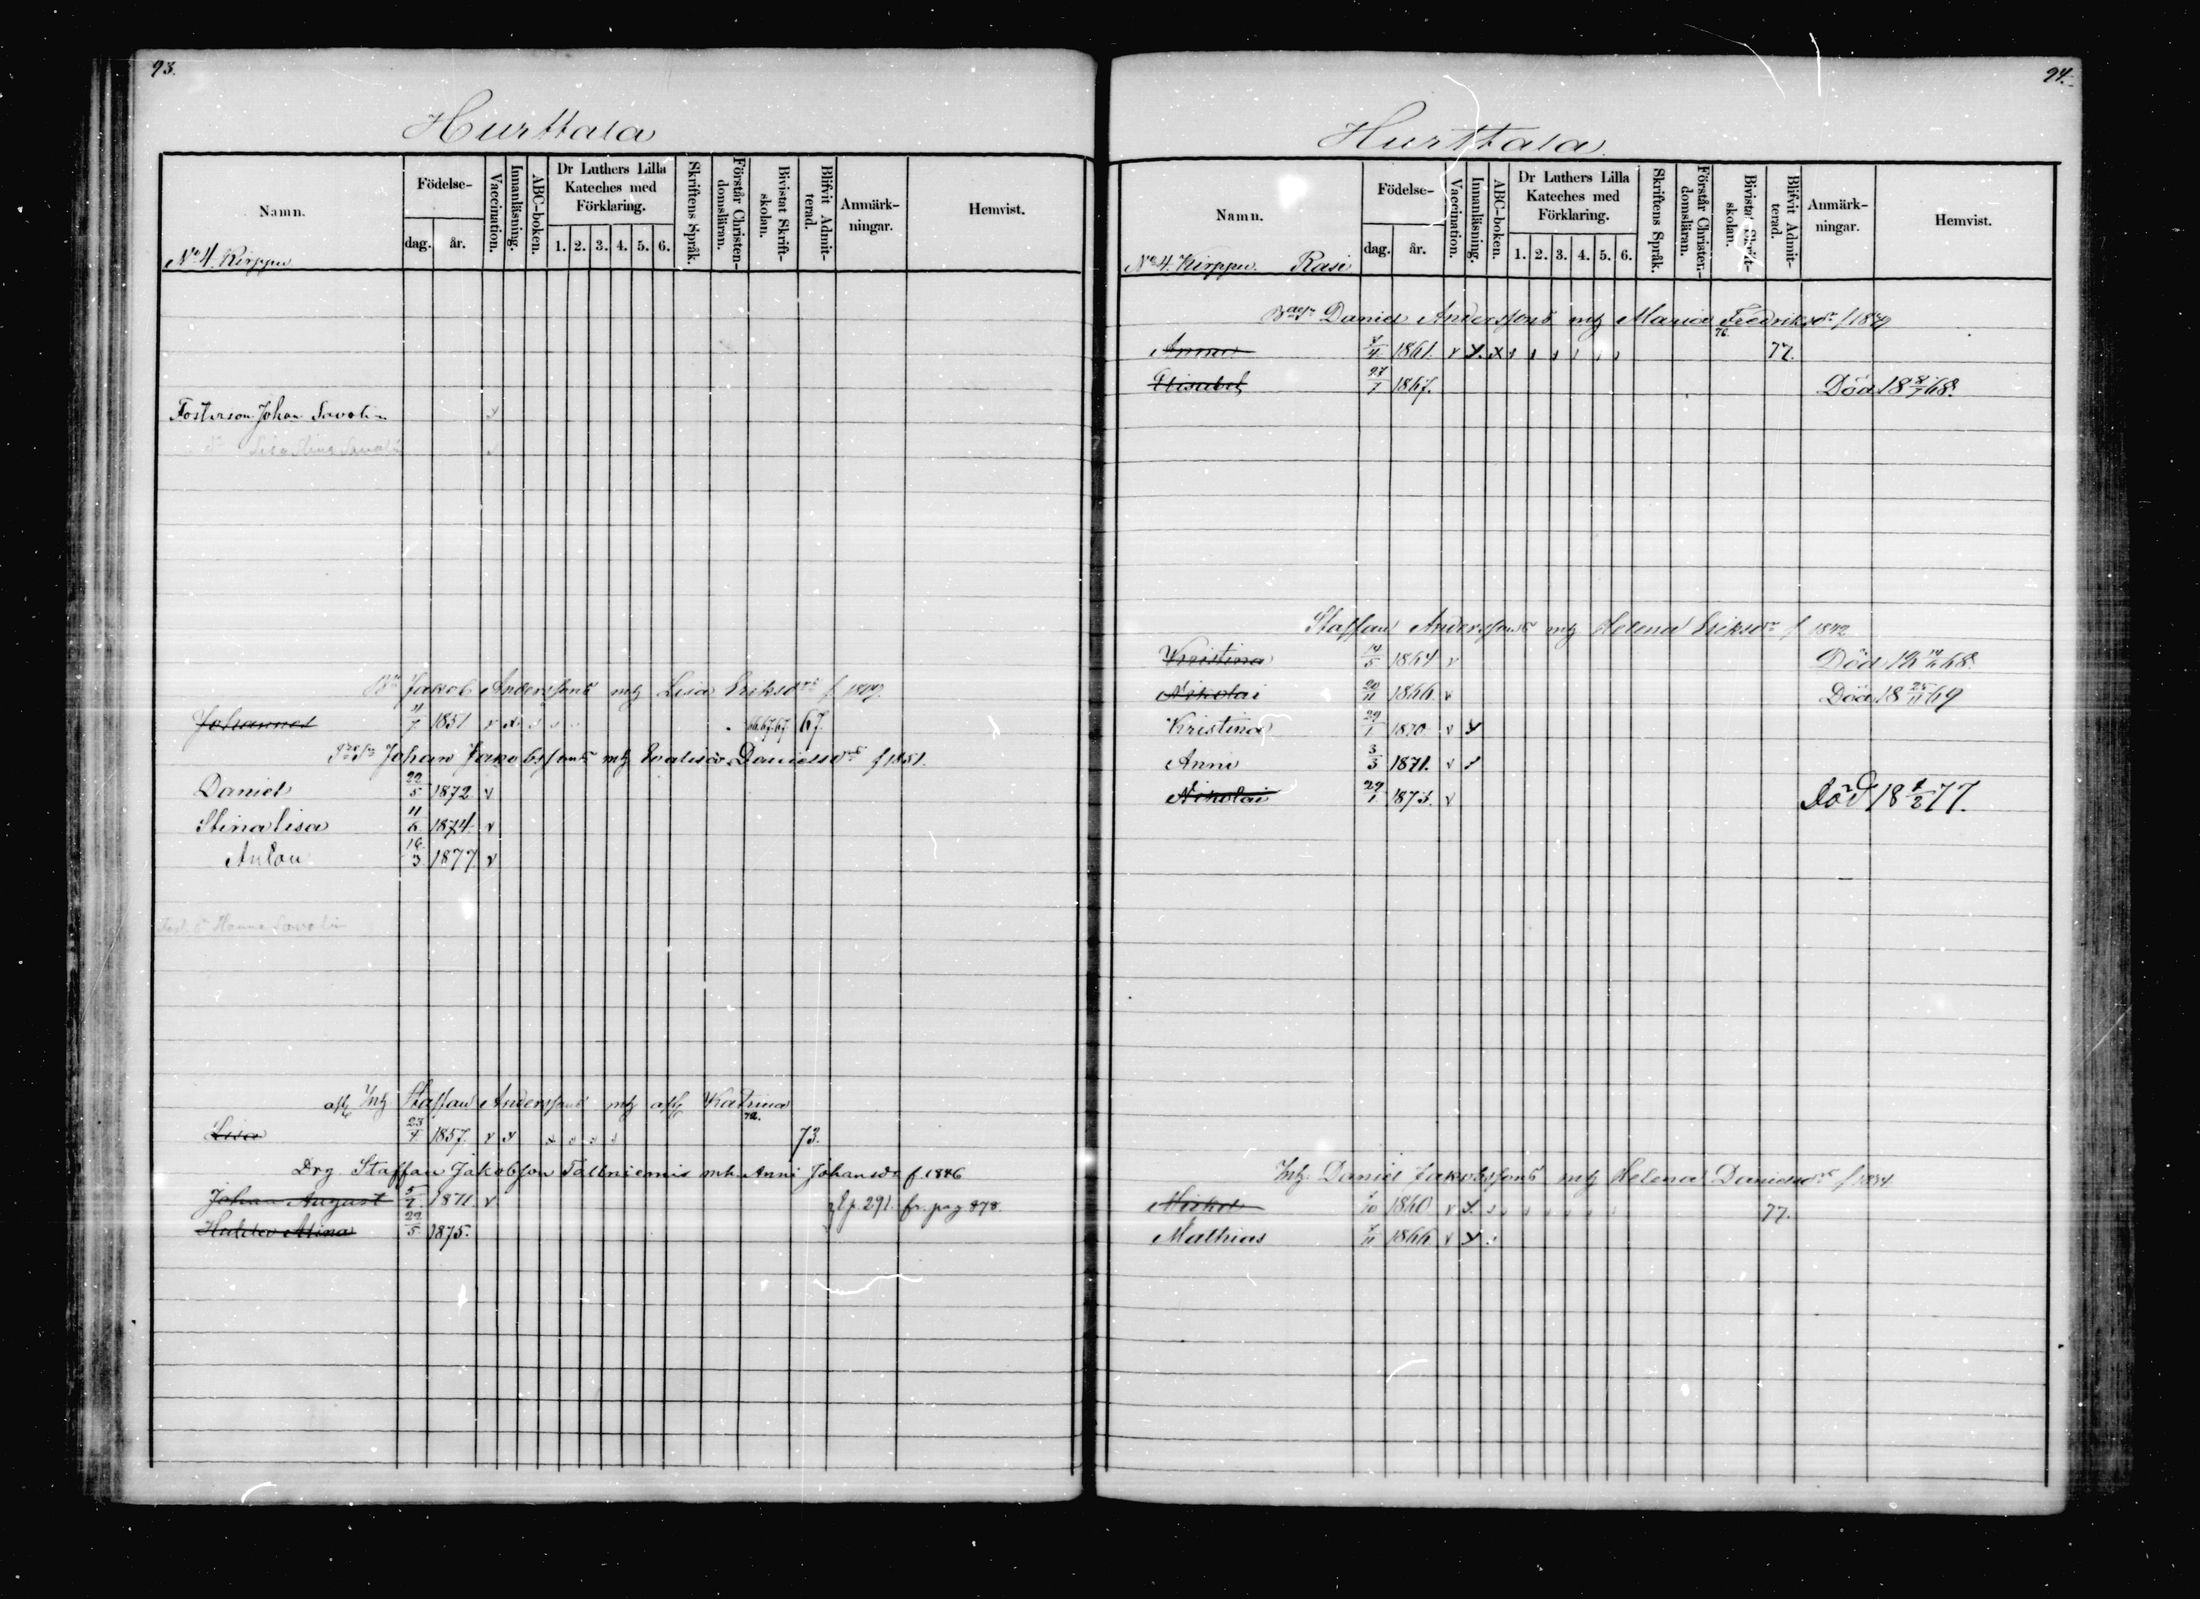 93.
Hurttala
Namn. Födelse- dag. år. Vaccination. Innanläsning. ABC-boken. Dr Luthers Lilla Kateches med Förklaring. 1. 2. 3. 4. 5. 6. Skriftens Språk. Förstår Christendomsläran. Bivistat Skriftskolan. Blifvit Admitterad. Anmärkningar. Hemvist.
No 4. Kirppu
Fosterson Johan Savolin v
Savolin v
Jakob Anderssons mh Lisa Eriksdr f. 1809.
Johannes 1851 v x 66.67.67. 67.
Johan Jakobssons mh Evalisa Danielsdr f 1851.
Daniel 22/5 1872 v
Stina Lisa 11/6 1874 v
Anton 16/3 1877. v
Hanna Savolin
Staffan Anderssons mh Katrina
72.
Lisa 23/4 1857. v x 73.
Drg. Staffan Jakobson Tallniemis mh. Anni Johansdr f. 1846
Johan August 1871. v p. 291. fr. pag 878.
Mina 29/5 1875.
94.
Hurttala.
Namn. Födelse- dag. år. Vaccination. Innanläsning. ABC-boken. Dr Luthers Lilla Kateches med Förklaring. 1. 2. 3. 4. 5. 6. Skriftens Språk. Förstår Christendomsläran. Bivistat Skriftskolan. Blifvit Admitterad. Anmärkningar. Hemvist.
No 4. Kirppu. Rasi
Daniel Anderssons mh Maria Fredriksdr
76.
Anna 1861. v x x 77.
Elisabet 27/1 1867. Död 18 8/7 68.
Staffan Anderssons mh Helena Eriksdr f 1842
Kristina 14/5 1864 v Död 18 68.
Nikolai 20/11 1866 v Död 18 25/11 69
Kristina 29/1 1870 v x
Anni 3/3 1871. v
Nikolai 29/1 1873. v Död 18 1/2 77.
Daniel Jakobssons mh Helena Danielsdr
Mickel 1860 v x 77.
Mathias 1866 v x